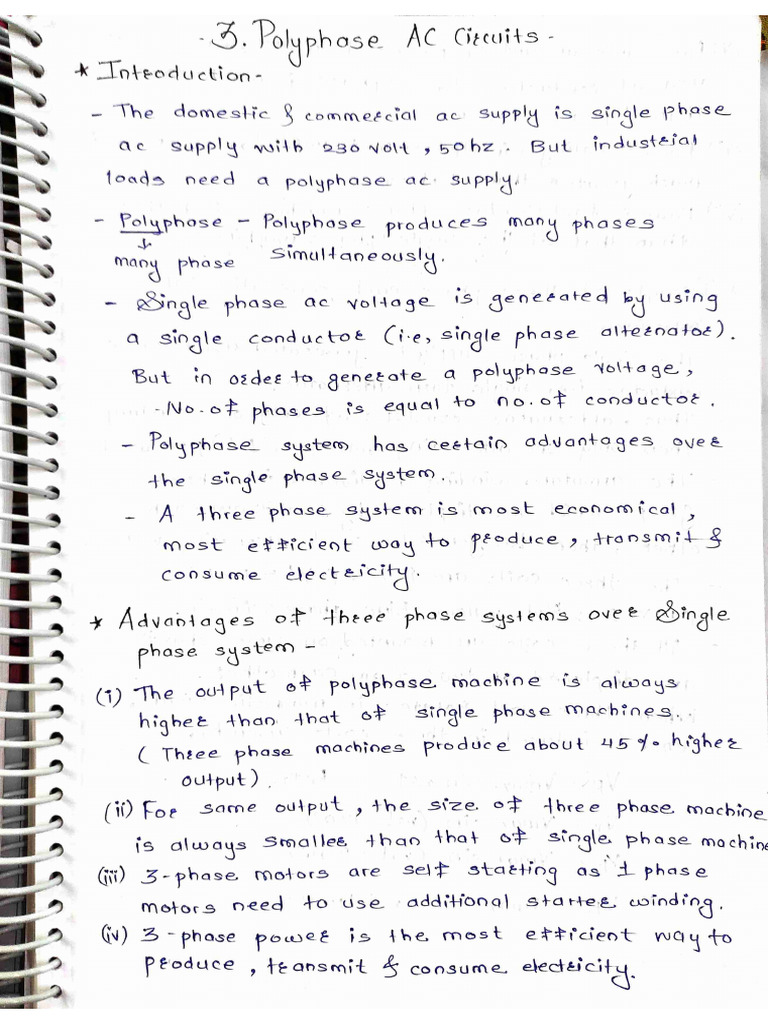 - 3. Polyphase AC Circuits -
* Introduction -
- The domestic & commercial ac supply is single phase
ac supply with 230 volt, 50hz. But industrial
loads need a polyphase ac supply.
- Polyphase - Polyphase produces many phases
↓
many phase simultaneously.
- Single phase ac voltage is generated by using
a single conductor (i.e, single phase alternator).
But in order to generate a polyphase voltage,
No. of phases is equal to no. of conductor.
- Polyphase system has certain advantages over
the single phase system.
- A three phase system is most economical,
most efficient way to produce, transmit &
consume electricity.
* Advantages of three phase systems over Single
phase system -
(i) The output of polyphase machine is always
higher than that of single phase machines.
(Three phase machines produce about 45% higher
output).
(ii) For same output, the size of three phase machine
is always smaller than that of single phase machine
(iii) 3-phase motors are self starting as 1 phase
motors need to use additional starter winding.
(iv) 3-phase power is the most efficient way to
produce, transmit & consume electricity.